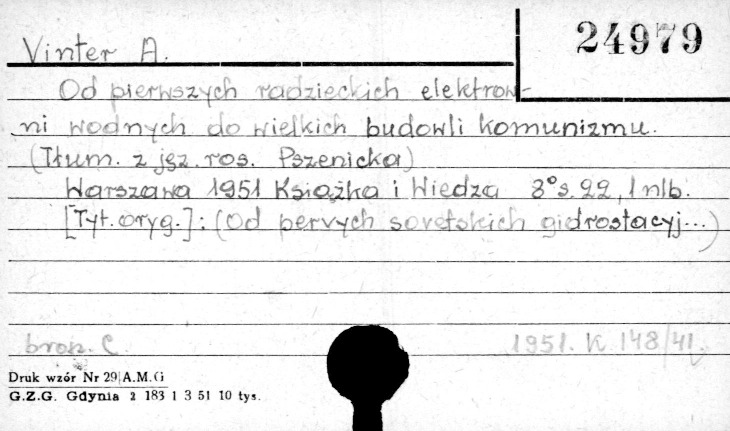 Vinter A.
24979
Od pierwszych radzieckich elektrow-
ni wodnych do wielkich budowli komunizmu.
(Tłum. z jęz. ros. Pszenicka)
Warszawa 1951 Książka i Wiedza 8° s. 22, 1 nlb.
[Tyt. oryg.]: (Od pervych sovetskich gidrostacyj...)
brosz. C
1951. K 148/41
Druk wzór Nr 29 A.M.G
G.Z.G. Gdynia 2 183 1 3 51 10 tys.